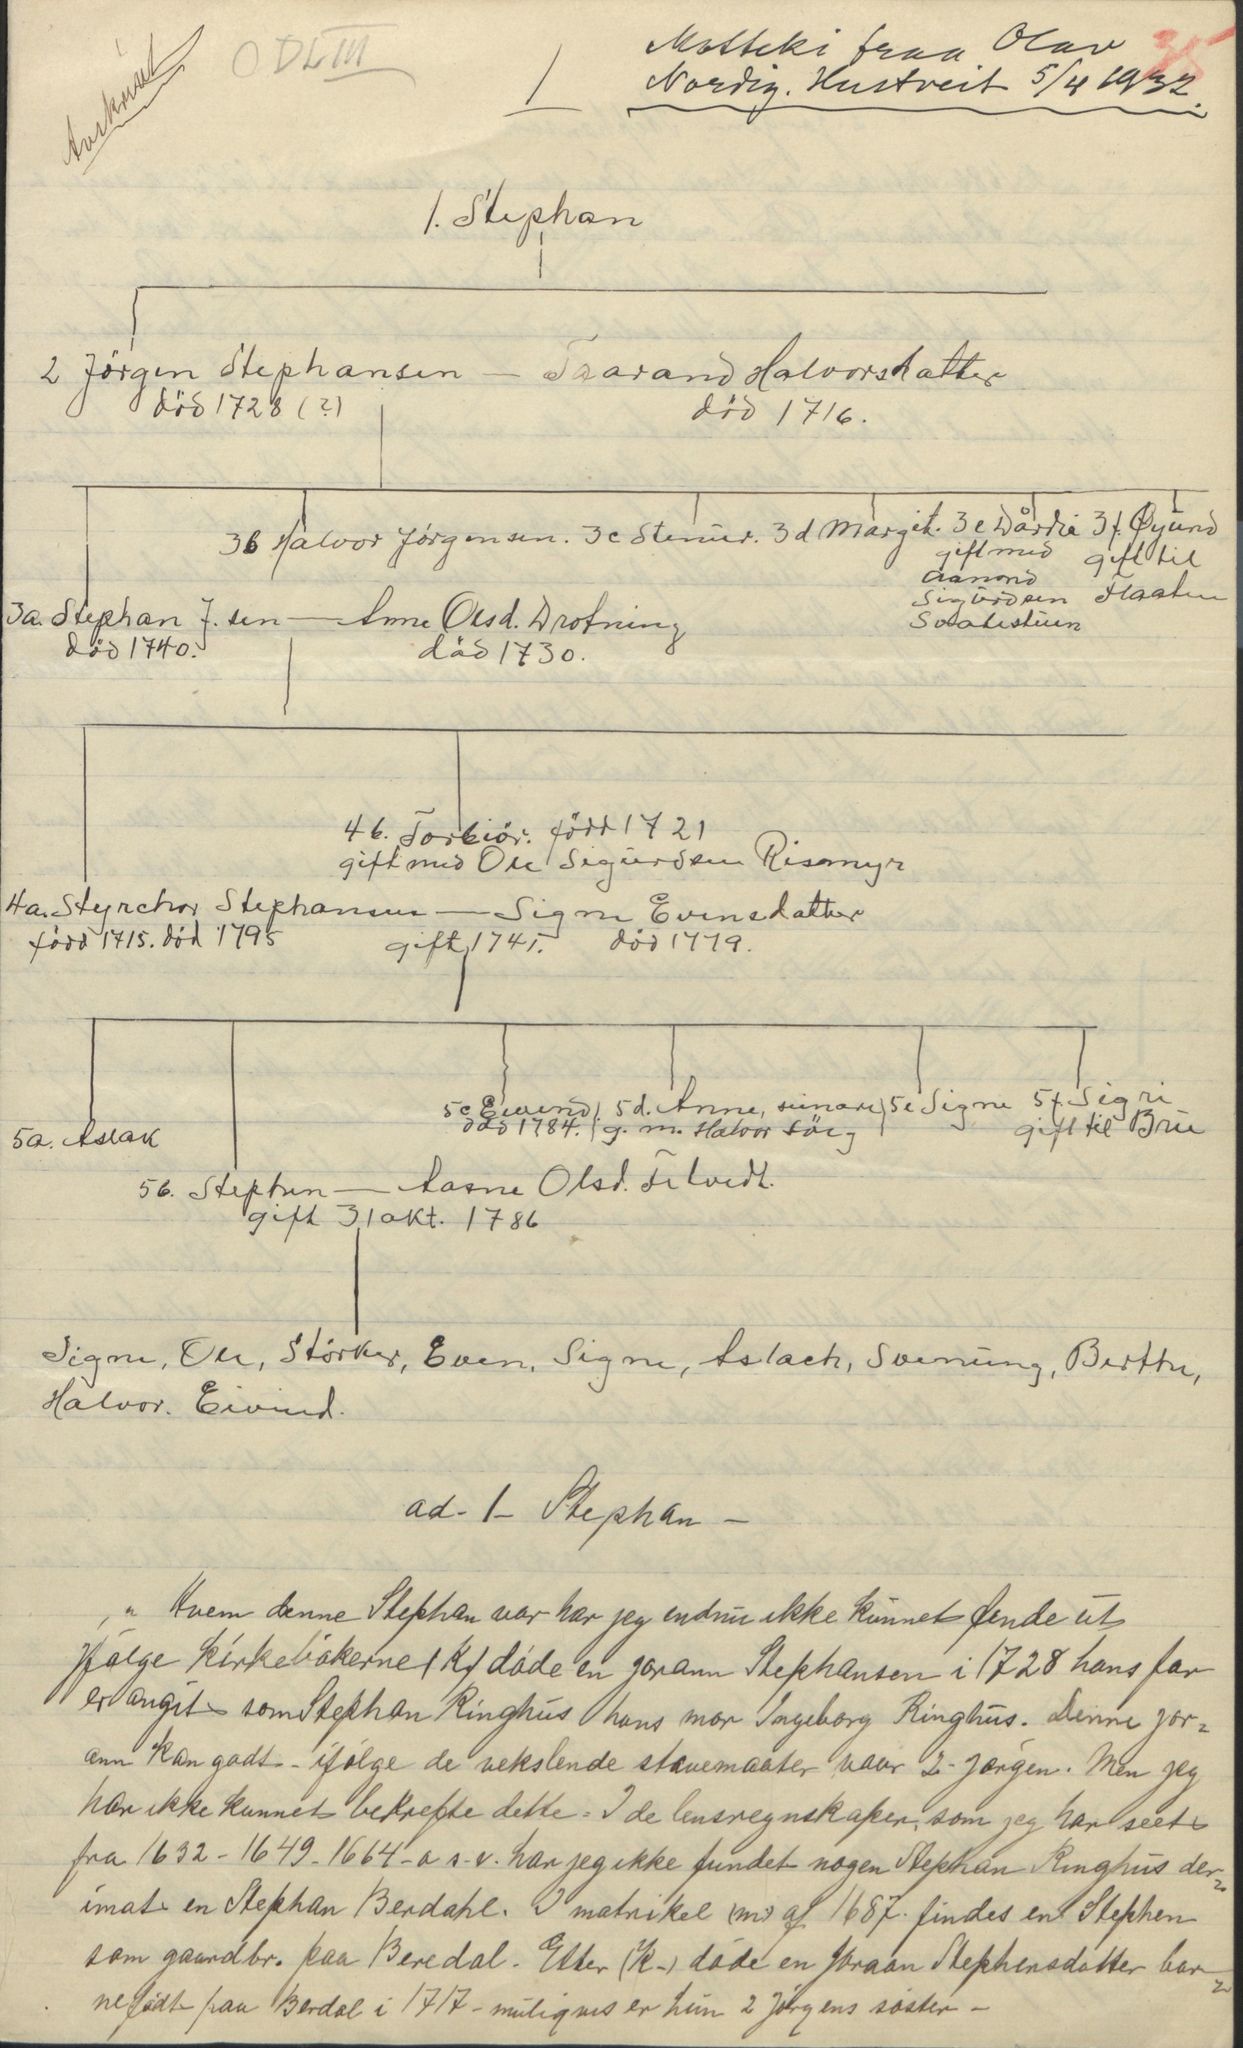 Avskrivet
ODLIII
1
Motteki fraa Olav
Nordig. Hustveit 5/4 1932.
1. Stephan
2 Jörgen Stephansen — Taarand Halvorsdatter
död 1728 (?)
död 1716.
3b Halvor Jörgensen. 3c Stenur. 3d Margit. 3e Dårdie 3f. Øyünd
gift med
Aamond
Sigürdsen
gift til
Flaaten
3a. Stephan J. sen — Anne Olsd. Drotning
död 1740.
död 1730.
4b. Torbiör. född 1721
gift med Ole Sigürdsen Risemyr
4a. Styrchor Stephansen — Signe Evensdatter
född 1715. död 1795
gift 1741.
död 1779.
5c Eivend
död 1784.
5d. Anne,
g. m. Halvor
5e Signe
5f. Sigri
gift til Brü
5a. Aslak
5b. Stephen — Aasne Olsd. Felvedt.
gift 31 okt. 1786
Signe, Ole, Störker, Even, Signe, Aslach, Svenüng, Birthe,
Halvor. Eivind.
ad- 1 - Stephan -
" Hvem denne Stephan var har jeg endnü ikke künnet finde üt
Ifölge kirkebökerne (K) döde en Jorann Stephansen i 1728 hans far
er angit som Stephan Ringhüs hans mor Ingeborg Ringhüs. Denne Jor=
ann kan godt - ifölge de vekslende stavemaater være 2- Jörgen. Men jeg
har ikke kunnet bekrefte dette - I de lensregnskaper, som jeg har seet
fra 1632 - 1649 - 1664 - o s. v. har jeg ikke fundet nogen Stephan Ringhüs der=
imat en Stephan Berdahl. I matrikel (m) af 1687. findes en Stephen
som gaardbr. paa Beredal. Etter (K-) döde en Joraan Stephensdatter bar=
nefödt paa Berdal i 1717 - müligvis er hün 2 Jörgens söster -